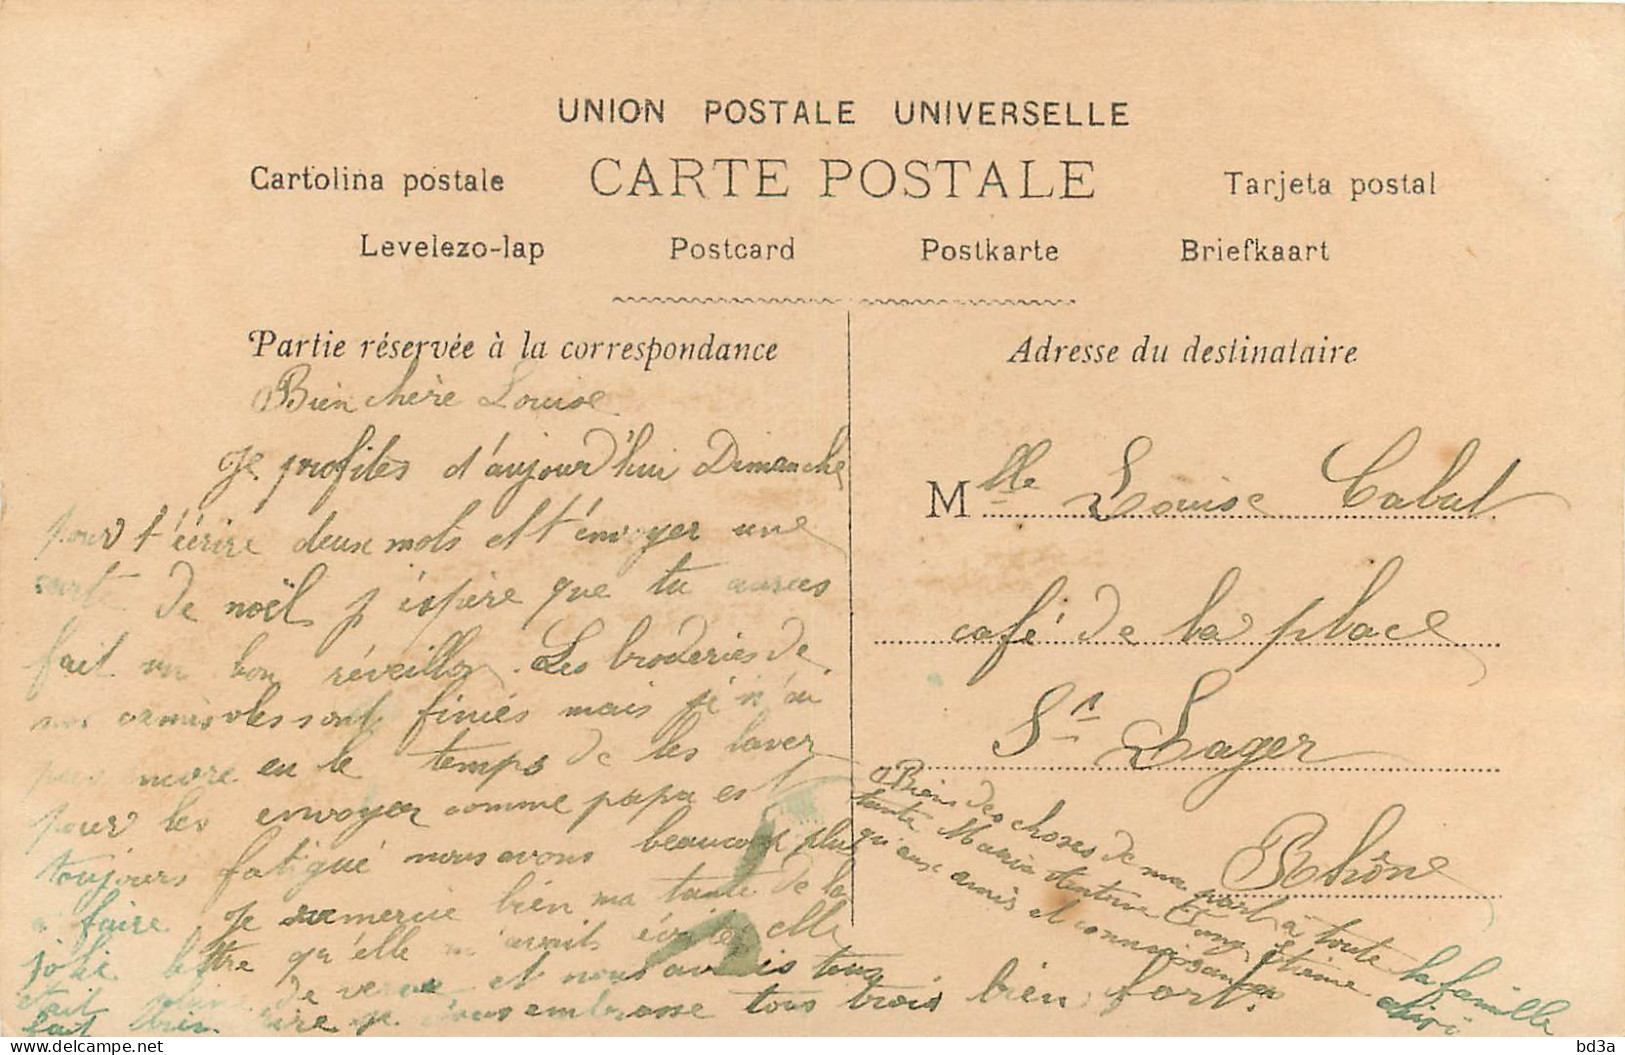 UNION POSTALE UNIVERSELLE
Cartolina postale CARTE POSTALE Tarjeta postal
Levelezo-lap Postcard Postkarte Briefkaart
Partie réservée à la correspondance
Bien chère Louise
Je profites d'aujourd'hui Dimanche
pour t'écrire deux mots et t'envoyer une
carte de noël j'éspère que tu aurées
fait un bon réveillon. Les broderies de
nos camisoles sont finies mais je n'ai
pas encore eu le temps de les laver
pour les envoyer comme papa est
toujours fatigué nous avons beaucoup plus
à faire. Je remercie bien ma tante de la
jolie lettre qu'elle m'avait écrite elle
était pleine de verve et nous avais tous
fait bien rire je vous embrasse tous trois bien fort.
Adresse du destinataire
Mlle Louise Cabut
café de la place
St Lager
Rhône
Biens des choses de ma part à toute la famille
tante Maria Etienne
qu'aux amis et connaissances
bd3a